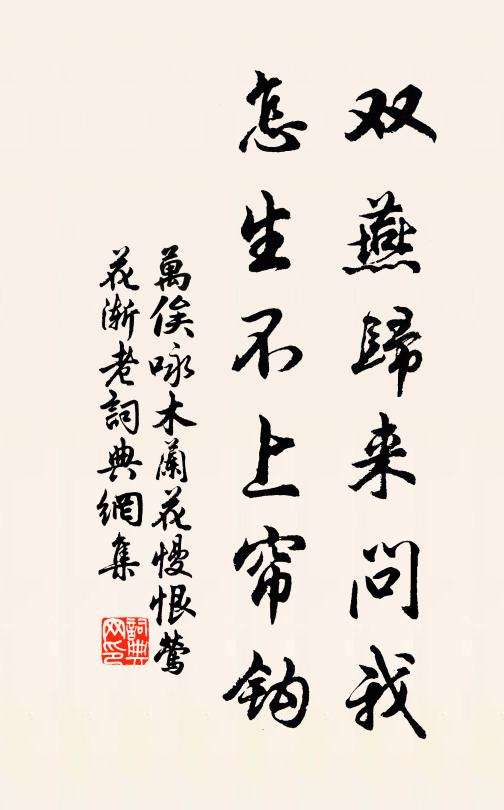 双燕歸来问我
怎生不上帘钩
萬俟咏木蘭花慢恨鶯
花渐老詞典網集
詞典网印